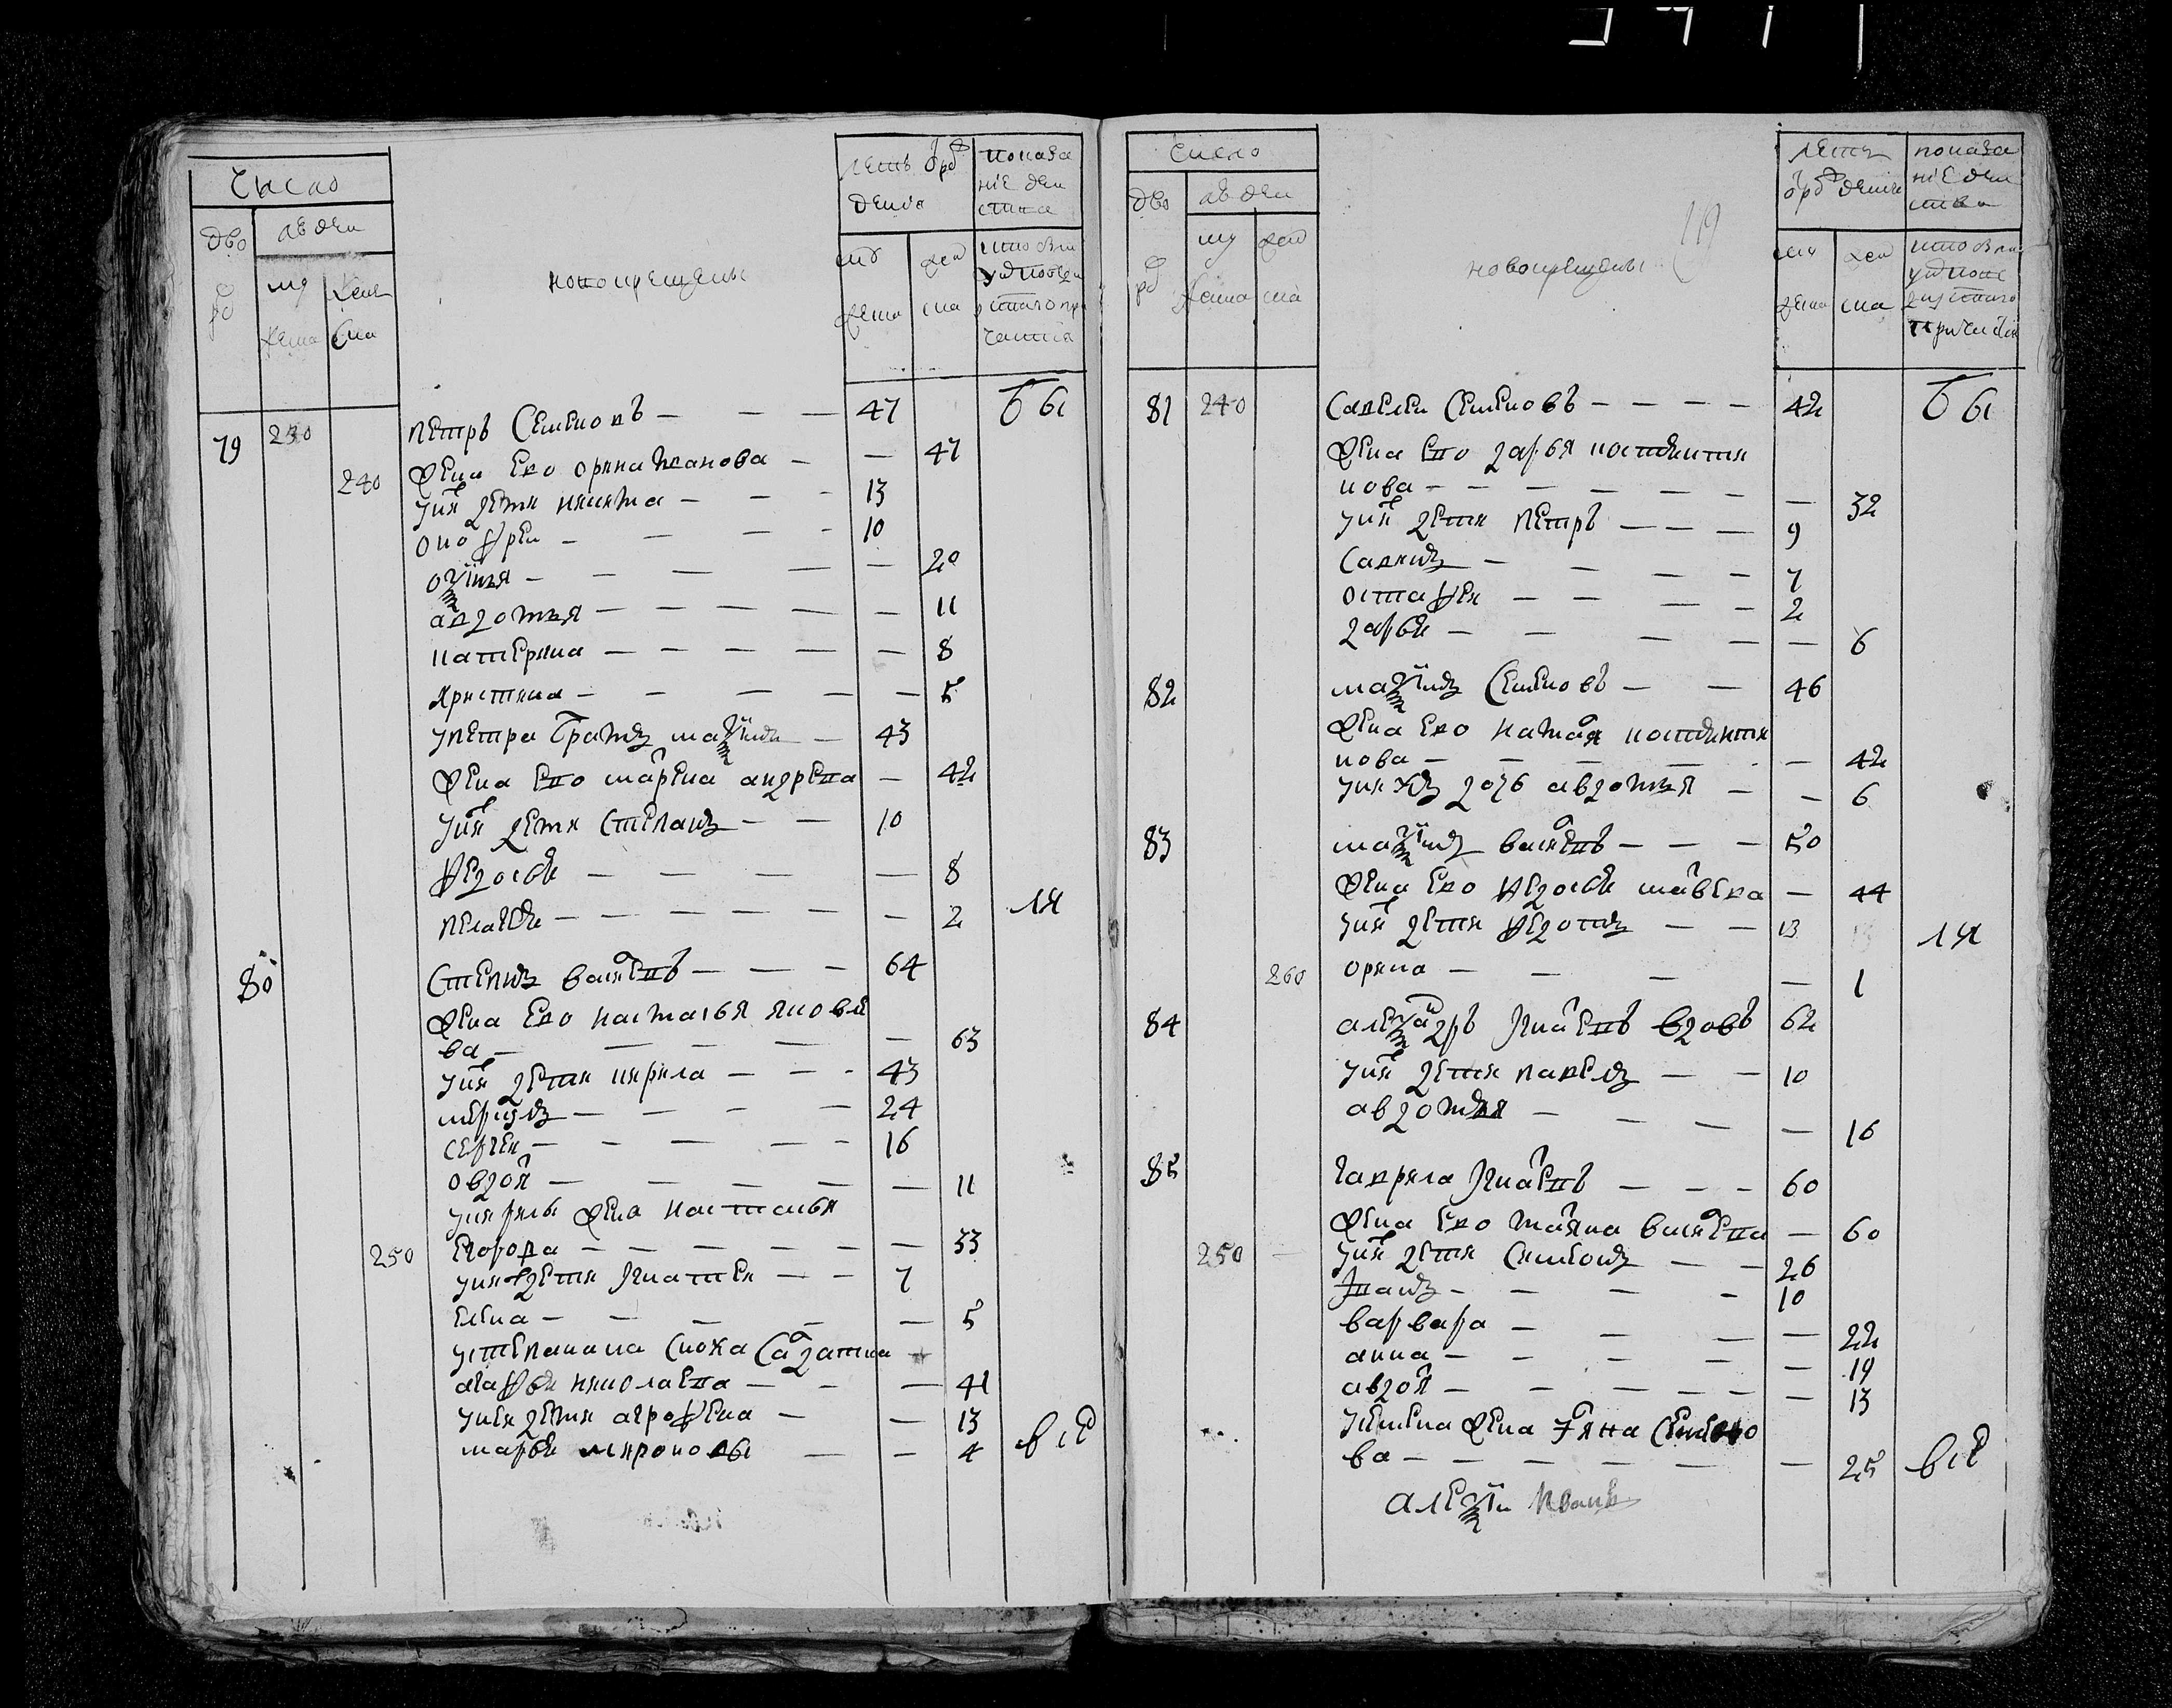 Число
дворо
людеи
мужеска
женска
новокрещены
летъ от рождения
мужеска
женска
показание действа
кто был у исповеди и святого причастия
79 230 Петръ Семеновъ — — — 47 бы
240 жена ево орина Иванова — — 47
у них дети никита — — - 13
онофреи — — — - 10
оксинья — — — — — 20
авдотья — — — — — 11
катерина — — — — — 8
христина — — — — — 5
у петра братъ максимъ — 43
жена ево марена андреева — 42
у них дети Степанъ — — 10
федосья — — — — 8
пелагея — — — — — — 2 ли
80 Степанъ васильевъ — — - 64
жена ево настасья яковле
ва — — — — — 63
у них дети кирила — — - 43
— — — — 24
сергеи — — — — - 16
овдотья — — — — — 11
у кирилы жена настасья
250 егорова — — — — — — 33
у них дети Игнатеи — — 7
елена — — — — — 5
у степана сноха Солдатка
агафья николаева — - — 41
у нея дети агрофена — — 13
марья мироновы — — 4 все
Число
дворо
людеи
мужеска
женска
новокрещены
119
лета от рождения
мужеска
женска
показание действа
кто был у исповеди и святого причастия
81 240 Савелеи Семеновъ — — — — 42 бы
жена ево дарья костенти
нова — — — — — — — 32
у них дети Петръ — — — 9
Савинъ — — — — 7
остафеи — — — - 2
дарья — — — — — 6
82 максимъ Семеновъ — — 46
жена ево наталья костенти
нова — — — — - — 42
у них дочь авдотья — — 6
83 максимъ васильевъ — — — 50
жена ево федосья матвеева — 44
у них дети федотъ — — 13 ли
260 орина — — — — — 1
84 александръ Игнатьевъ вдовъ 62
у них дети павелъ — — 10
авдотья — — — — 16
85 гаврила Игнатьевъ — — - 60
жена ево татьяна васильева — 60
250 у них дети Симеонъ — — 26
Иванъ — — — - 10
варвара — — — — 22
анна — — — — — 19
авдотья — — — — — — 13
у семена жена ульяна Семено
ва — — — — — — — 25 все
алексеи Иванов